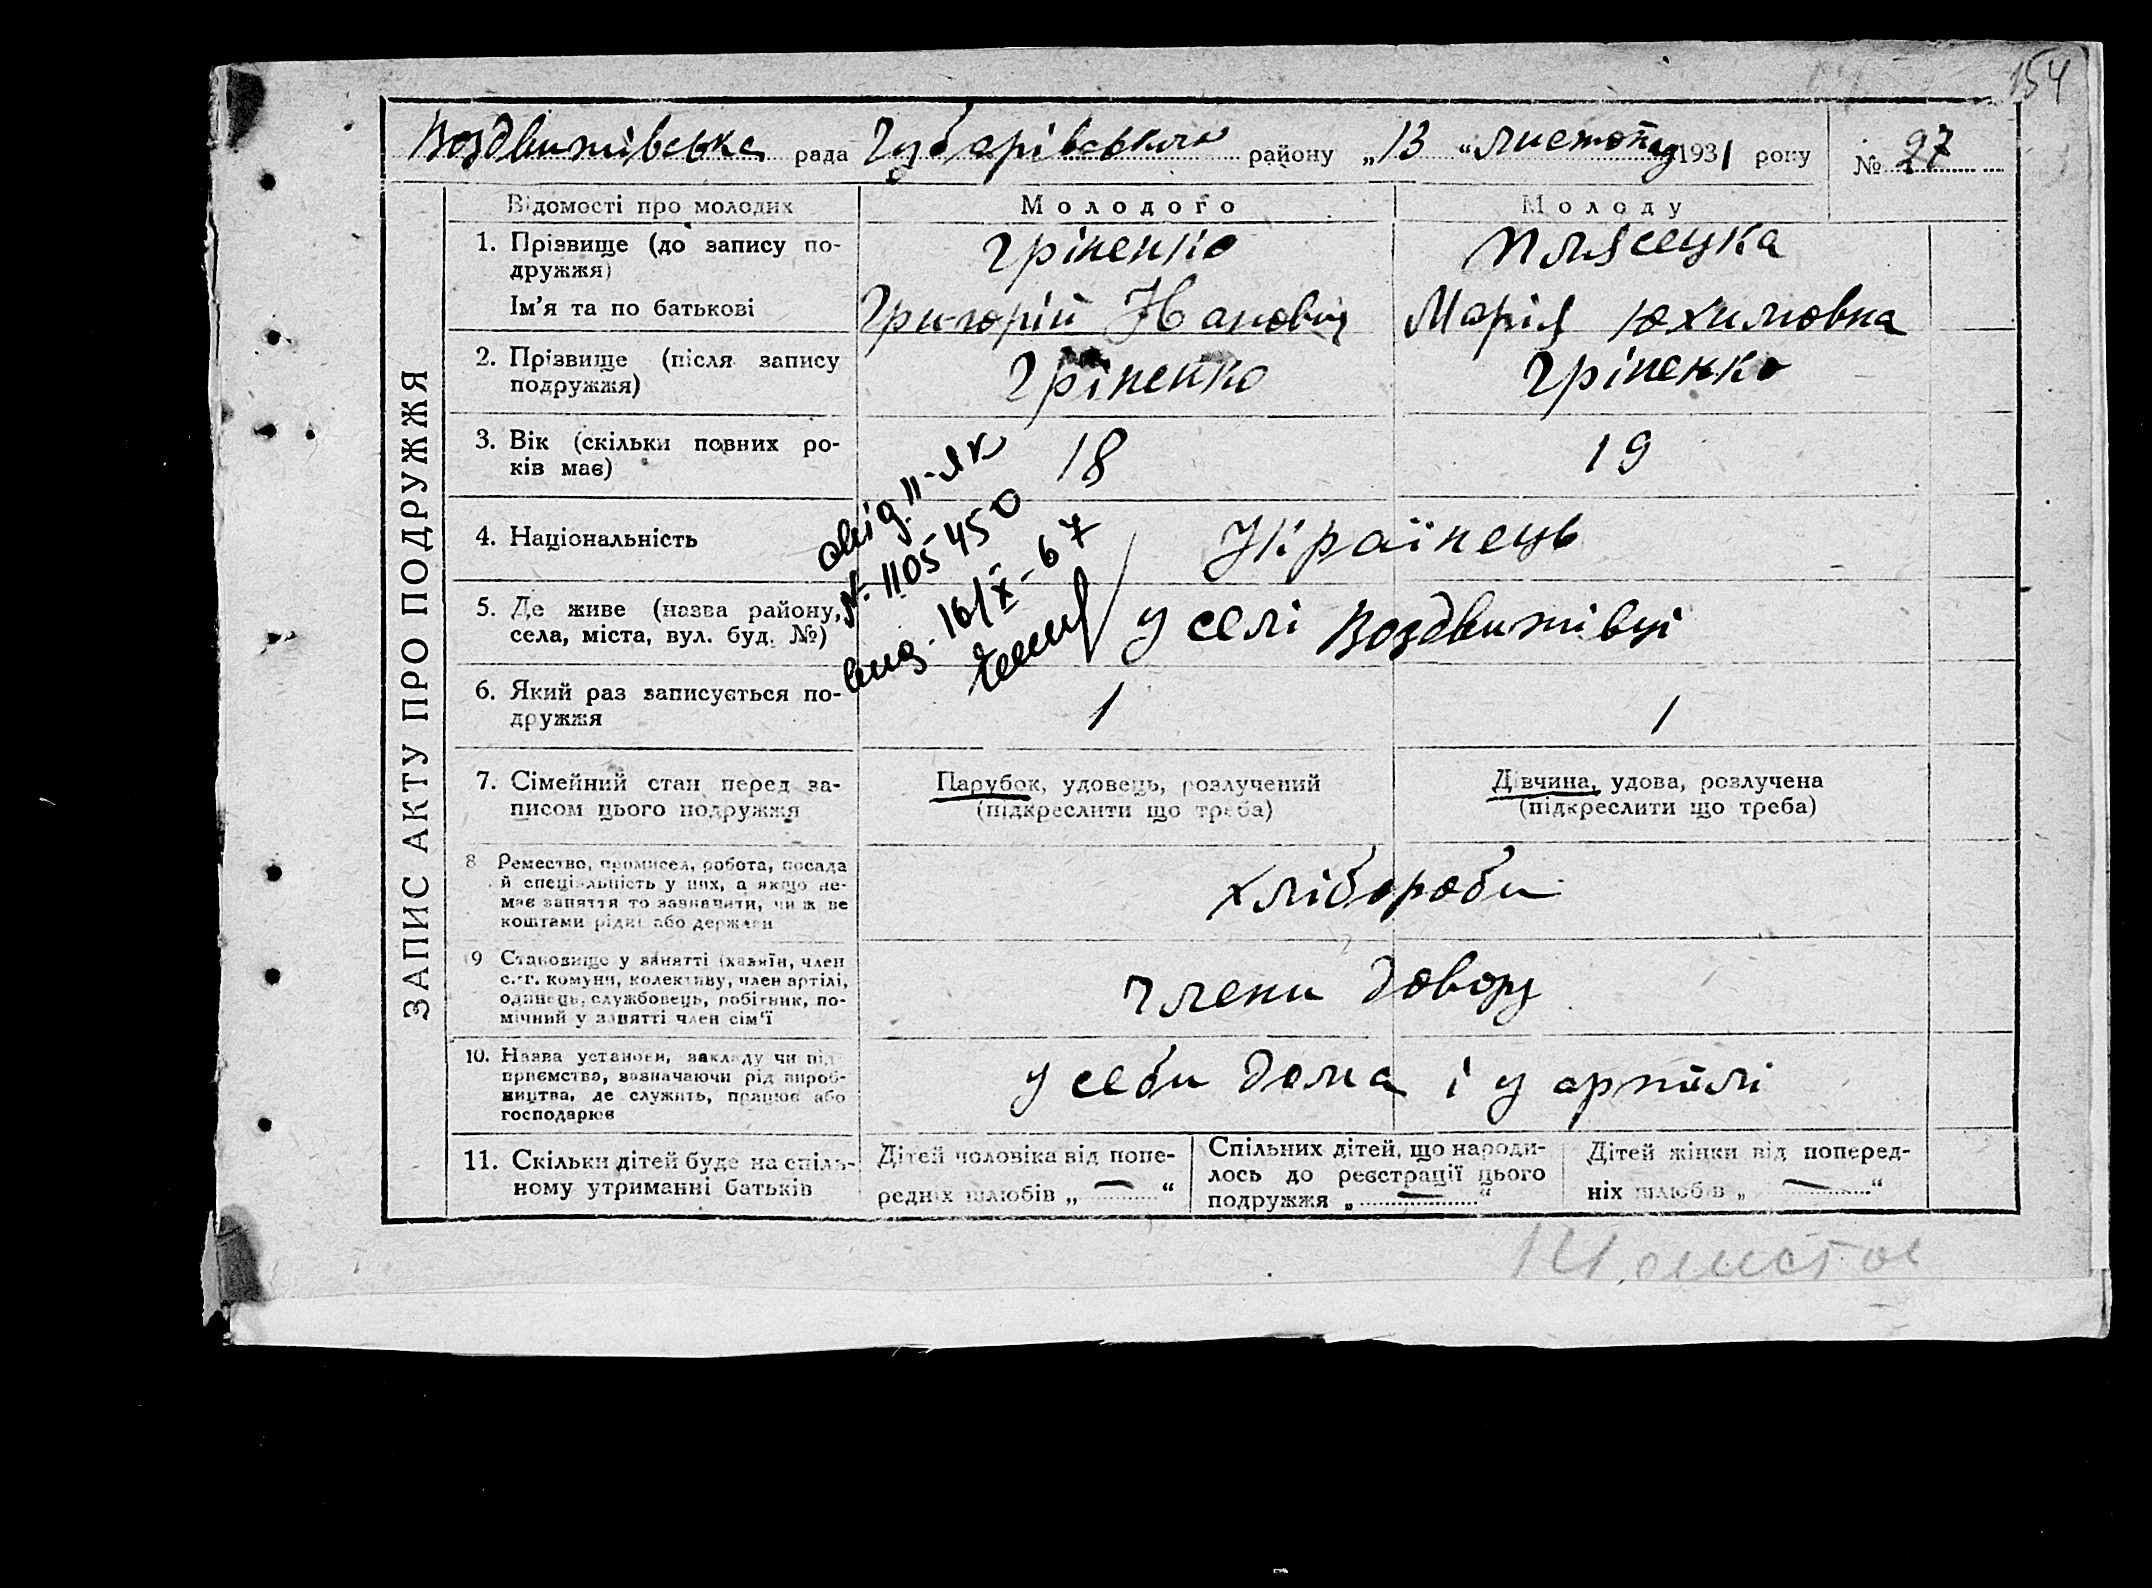 154
Воздвижівська рада Губарівського району „13 “ листопад 1931 року № 27
ЗАПИС АКТУ ПРО ПОДРУЖЖЯ
Відомості про молодих Молодого Молоду
1. Прізвище (до запису по-
дружжя) Гріненко Плясецка
Ім’я та по батькові Григорій Марія Юхимовна
2. Прізвище (після запису
подружжя) Гріненко Гріненко
3. Вік (скільки повних ро-
ків має) 18 19
4. Національність Українець
5. Де живе (назва району,
села, міста, вул. буд. №) у селі Воздвижівці
свід. II-ЯК
№ 1105450
вид. 16/X-67
6. Який раз записується по-
дружжя 1 1
7. Сімейний стан перед за-
писом цього подружжя
Парубок, удовець, розлучений
(підкреслити що треба)
Дівчина, удова, розлучена
(підкреслити що треба)
8 Ремество, промисел, робота, посада
й спеціяльність у них, а якщо не-
має заняття то зазначити, чиїж ве
коштами рідні або держави
хлібороби
9 Становище у занятті (хазяїн, член
с.-г. комуни, колективу, член артілі,
одинець, службовець, робітник, по-
мічний у занятті член сім’ї
члени двору
10. Назва установи, закладу чи під-
приємства, зазначаючи рід вироб-
ництва, де служить, працює або
господарює
у себи дома і у артілі
11. Скільки дітей буде на спіль-
ному утриманні батьків
Дітей чоловіка від попе-
редніх шлюбів „ — “
Спільних дітей, що народи-
лось до реєстрації цього
подружжя „ — “
Дітей жінки від поперед-
ніх шлюбів „ — “